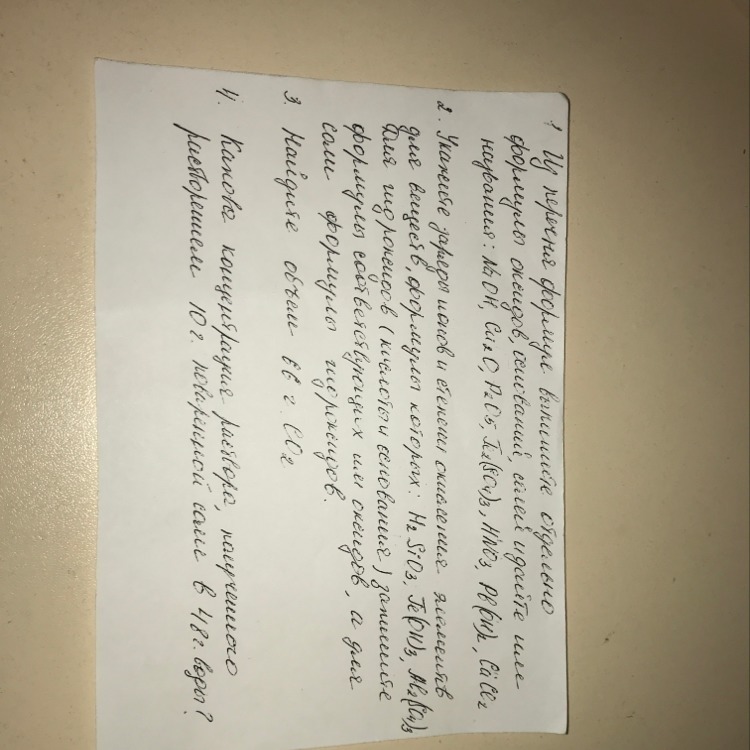 1 Из перечня формул выпишите отдельно
формулы оксидов, оснований, солей и дайте им
названия: NaOH, Cu2O, P2O5, Fe2(SO4)3, HNO3, Pb(OH)2, CaCl2
2. Укажите заряды ионов и степени окисления элементов
для веществ, формулы которых: H2SiO3, Fe(OH)3, Al2(SO4)3
Для гидроксидов (кислоты и основания) запишите
формулы соответствующих им оксидов, а для
соли формулы гидроксидов.
3. Найдите объем 66 г. CO2
4. Какова концентрация раствора, полученного
растворением 10 г. поваренной соли в 48 г. воды?